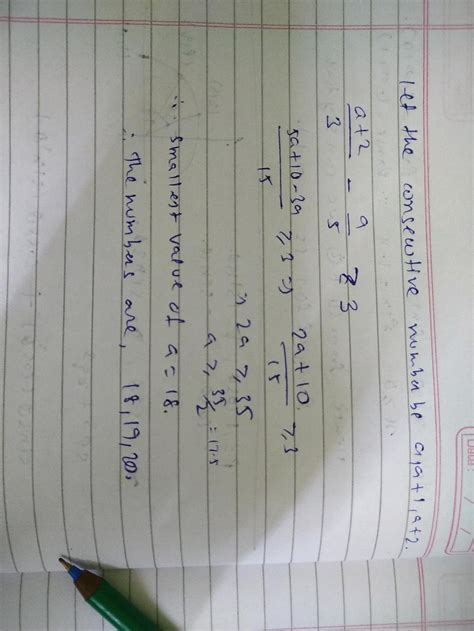 let the consecutive number be a, a+1, a+2.
a+2/3 - a/5 ≥ 3
5a+10-3a/15 ≥ 3 ⇒ 2a+10/15 ≥ 3
⇒ 2a ≥ 35
a ≥ 35/2 = 17.5
∵ smallest value of a = 18.
∴ The numbers are, 18, 19, 20.